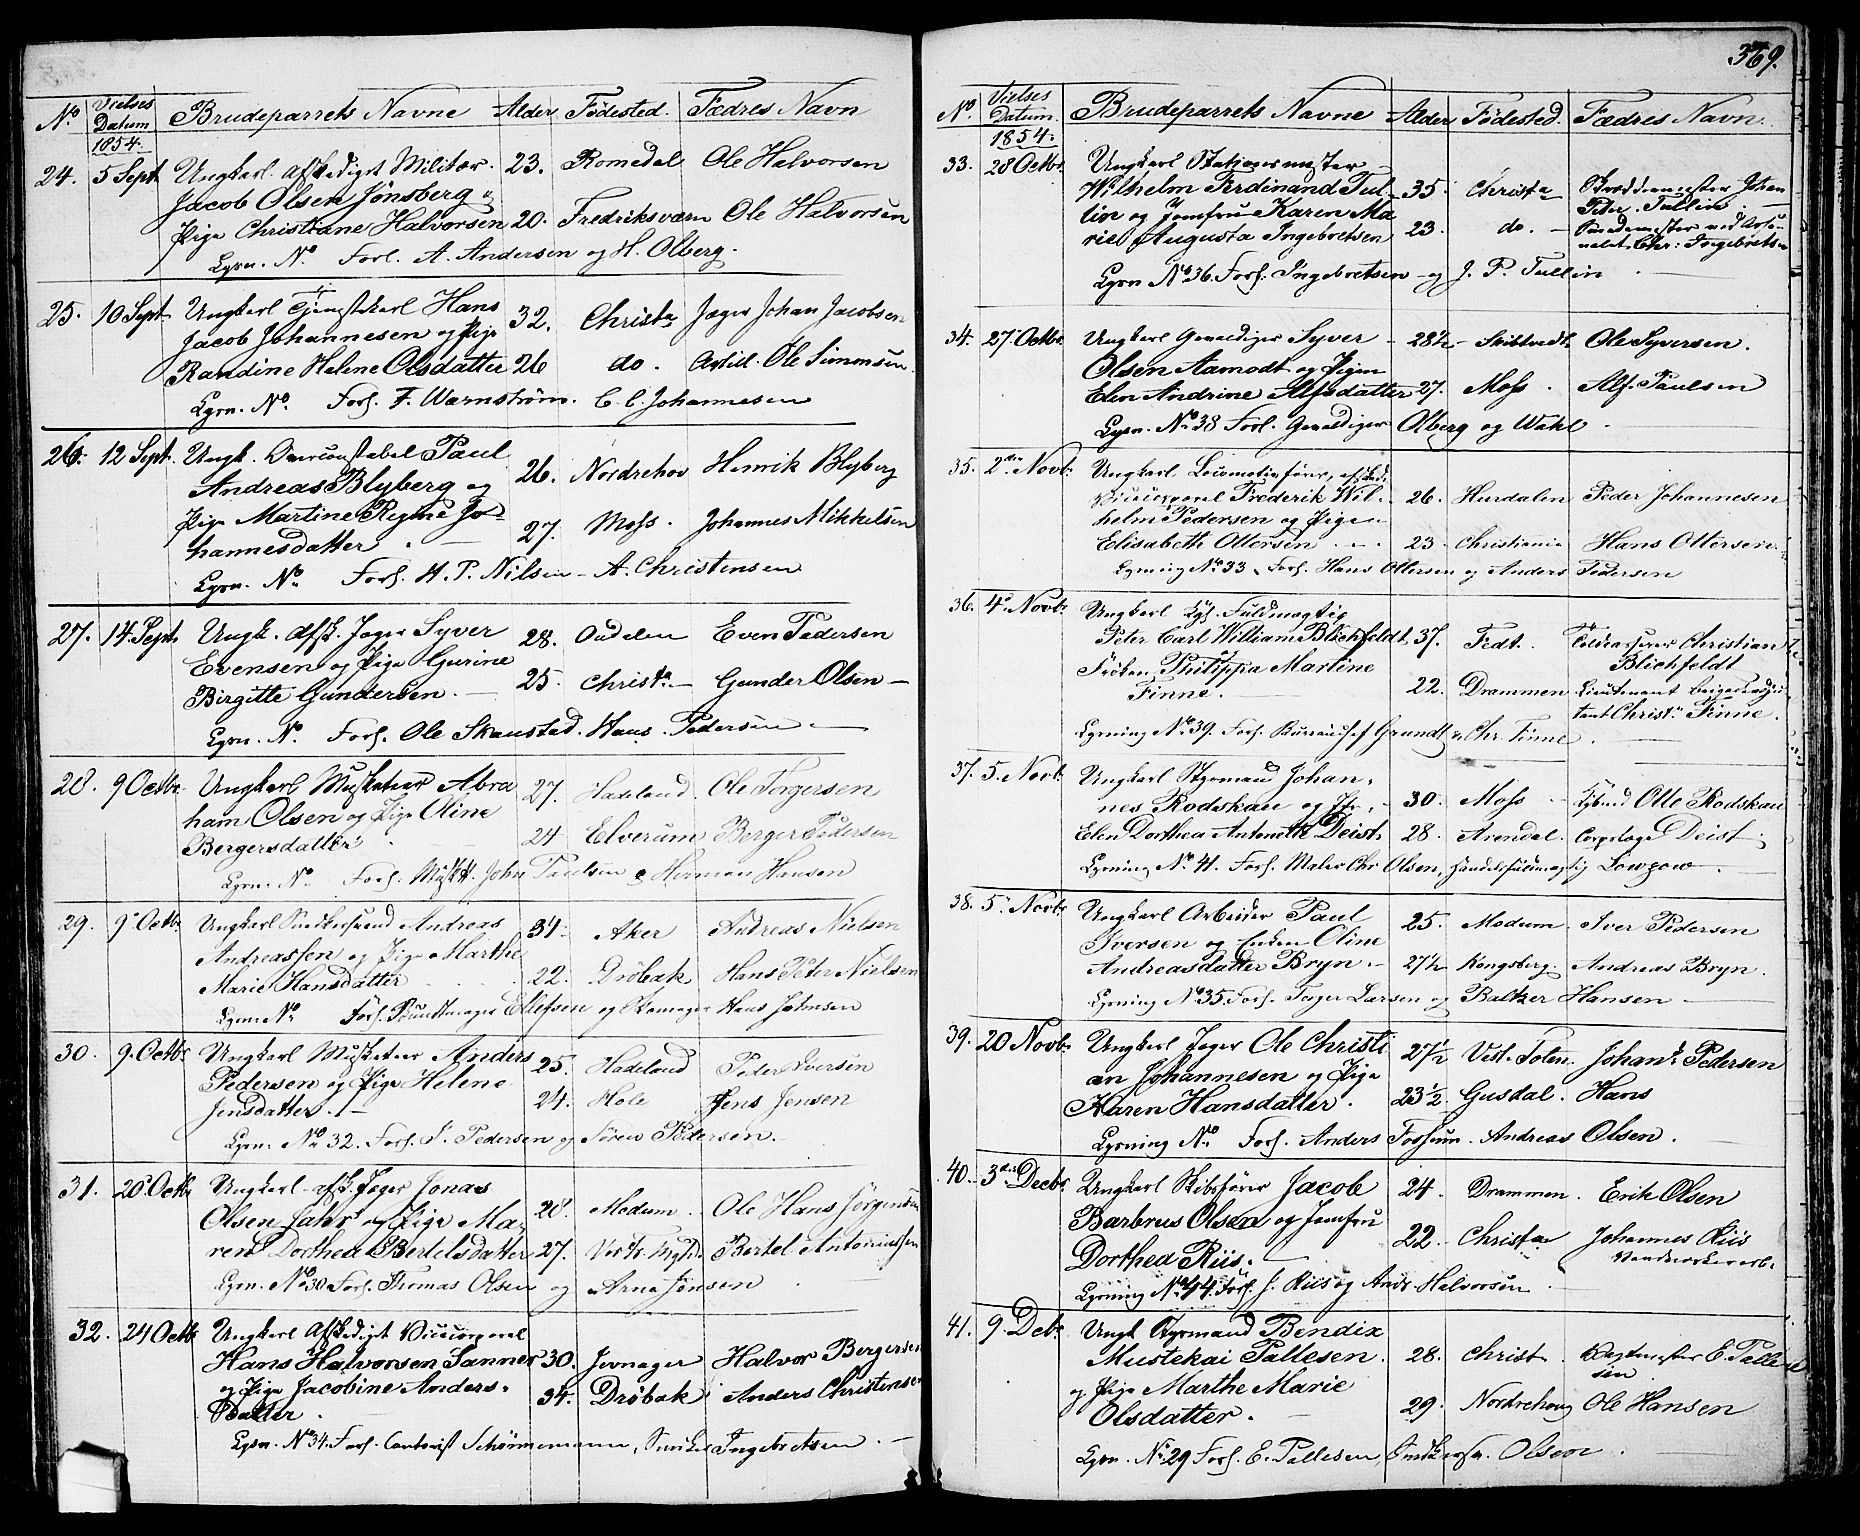 No Vielses Datum 1854. Brudeparrets Navne Alder Fødested. Fædres Navn
24. 5 Sept. Ungkarl afskediget Militær 23. Romedal Ole Halvorsen
Jacob Olsen Jönsberg
Pige Christiane Halvorsen 20. Fredriksværn Ole Halvorsen
Lysn. No Forl. A. Andersen og H. Olberg.
25. 10 Sept. Ungkarl Tjenestekarl Hans 32. Christa Jæger Johan Jacobsen
Jacob Johannesen og Pige
Randine Helene Olsdatter 26 do. Ole Simmsen
Lysn. No. Forl. F. Warnström. C. C. Johannesen
26. 12 Sept. Ungk. Overconstabel Paul 26. Nordrehov Henrik Blyberg
Andreas Blyberg og
Pige Martine Regine Jo- 27. Moss. Johannes Mikkelsen
hannesdatter
Lysn. No Forl. H. P. Nilsen - A. Christensen
27. 14 Sept. Ungk. afsk. Jæger Syver 28. Oudalen Even Pedersen
Evensen og Pige Gurine
Birgitte Gundersen. 25. Christa Gunder Olsen
Lysn. No. Forl. Ole Skaustad. Hans Pedersen
28. 9 Octbr. Ungkarl Musketeer Abra 27. Hadeland. Ole Torgersen
ham Olsen og Pige Oline
Bergersdatter 24 Elverum Berger Pedersen
Lysn. No Forl. Muskt. John Paulsen & Herman Hansen
29. 9 Octbr. Ungkarl Snedkersvend Andreas 34. Aker Andreas Nielsen
Andreassen og Pige Marthe
Marie Hansdatter 22. Dröbak Hans Peter Nielsen
Lysn. No Forl. Buntmager Ellefsen og Skomager Hans Johnsen
30. 9. Octbr. Ungkarl Musketeer Anders 25. Hadeland Peder Iversen
Pedersen og Pige Helene
Jensdatter. 24. Hole Jens Jensen
Lysn. No 32. Forl. J. Pedersen og Sören Pedersen.
31. 20 Octbr Ungkarl afsk. Jæger Jonas
Olsen Jahr og Pige Ma- 28. Modum. Ole Hans Jörgensen
ren Dorthea Bertelsdatter 27. Bertel Antoniussen
Lysn. No 30 Forl. Thomas Olsen og Arne Jensen
32. 24 Octbr Ungkarl Afskediget Vicecorporal
Hans Halvorsen Sanner 30. Jevnager Halvor Bergersen
og Pige Jacobine Anders- 34. Dröbak Anders Christensen
datter.
Lysn. No 34. Forl. Contorist Schörnemann, Snedker Ingebretsen
369.
No. Vielses Datum. 1854. Brudeparrets Navne Alder Fødested. Fædres Navn
33. 28 Octbr. Ungkarl
Wilhelm Ferdinand Tul- 35. Christa Johan
lin og Jomfru Karen Ma Peter Tullin.
rie Augusta Ingebretsen 23. do. Chr: Ingebretsen
Lysn No 36. Forl. Ingebretsen og J. P. Tullin
34. 27 Octbr. Ungkarl Gevaldiger Syver 28½ Skibtvedt Ole Syversen.
Olsen Aamodt og Pigen
Elen Andrine Alfsdatter 27. Moss. Alf. Paulsen
Lysn. No 38 Forl. Gevaldiger Olberg og Wahl
35. 2den Novbr. Ungkarl Locomotivfører, afsked.
Vicecorporal Frederik Wil- 26. Hurdalen Peder Johannesen
helm Pedersen og Pige
Elisabeth Ottersen 23. Christiania Hans Ottersen
Lysning No 33 Forl. Hans Ottersen og Anders Pedersen
36. 4 Novbr. Ungkarl Kgl. Fuldmægtig
Peter Carl William Blichfeldt 37. Fedt. Christian
Fröken Philippa Martine Blichfeldt
Finne. 22. Drammen Lieutenant Brigadeadju
tant Christn Finne.
Lysning No 39. Forl. Bureauchef Grundt & Chr. Finne
37. 5. Novbr. Ungkarl Styrmand Johan-
nes Rodskau og Pige 30. Moss Otte Rodskau
Elen Dorthea Antonette Deist. 28. Arendal. Corpslæge Deist
Lysning No 41. Forl. Maler Chr Olsen, Handelsfuldmægtig Lowzow
38. 5 Novbr. Ungkarl Arbeider Paul 25. Modum Iver Pedersen
Iversen og Enken Oline
Andreasdatter Bryn. 27½ Kongsberg. Andreas Bryn.
Lysning No 35. Forl. Larsen og Baltzer Hansen
39. 20 Novbr. Ungkarl Jæger Ole Christi 27½ Vest. Toten. Johans Pedersen
an Johannesen og Pige
Karen Hansdatter. 23½ Gusdal. Hans
Lysning No Forl. Anders Fossum. Andreas Olsen.
40. 3die Decbr. Ungkarl Skibsfører Jacob 24. Drammen. Erik Olsen
Barbrus Olsen og Jomfru
Dorthea Riis. 22. Christa Johannes Riis
Lysning No 44. Forl. J. Riis og Andr. Halvorsen
41. 9. Debr Ungk Styrmand Bendix
Mustekai Pallesen. 28. Christ E. Palle
sen
og Pige Marthe Marie
Olsdatter. 29. Nordrehoug Ole Hansen
Lysn. No 29 Forl. E. Pallesen, Snedkersv. Olsen